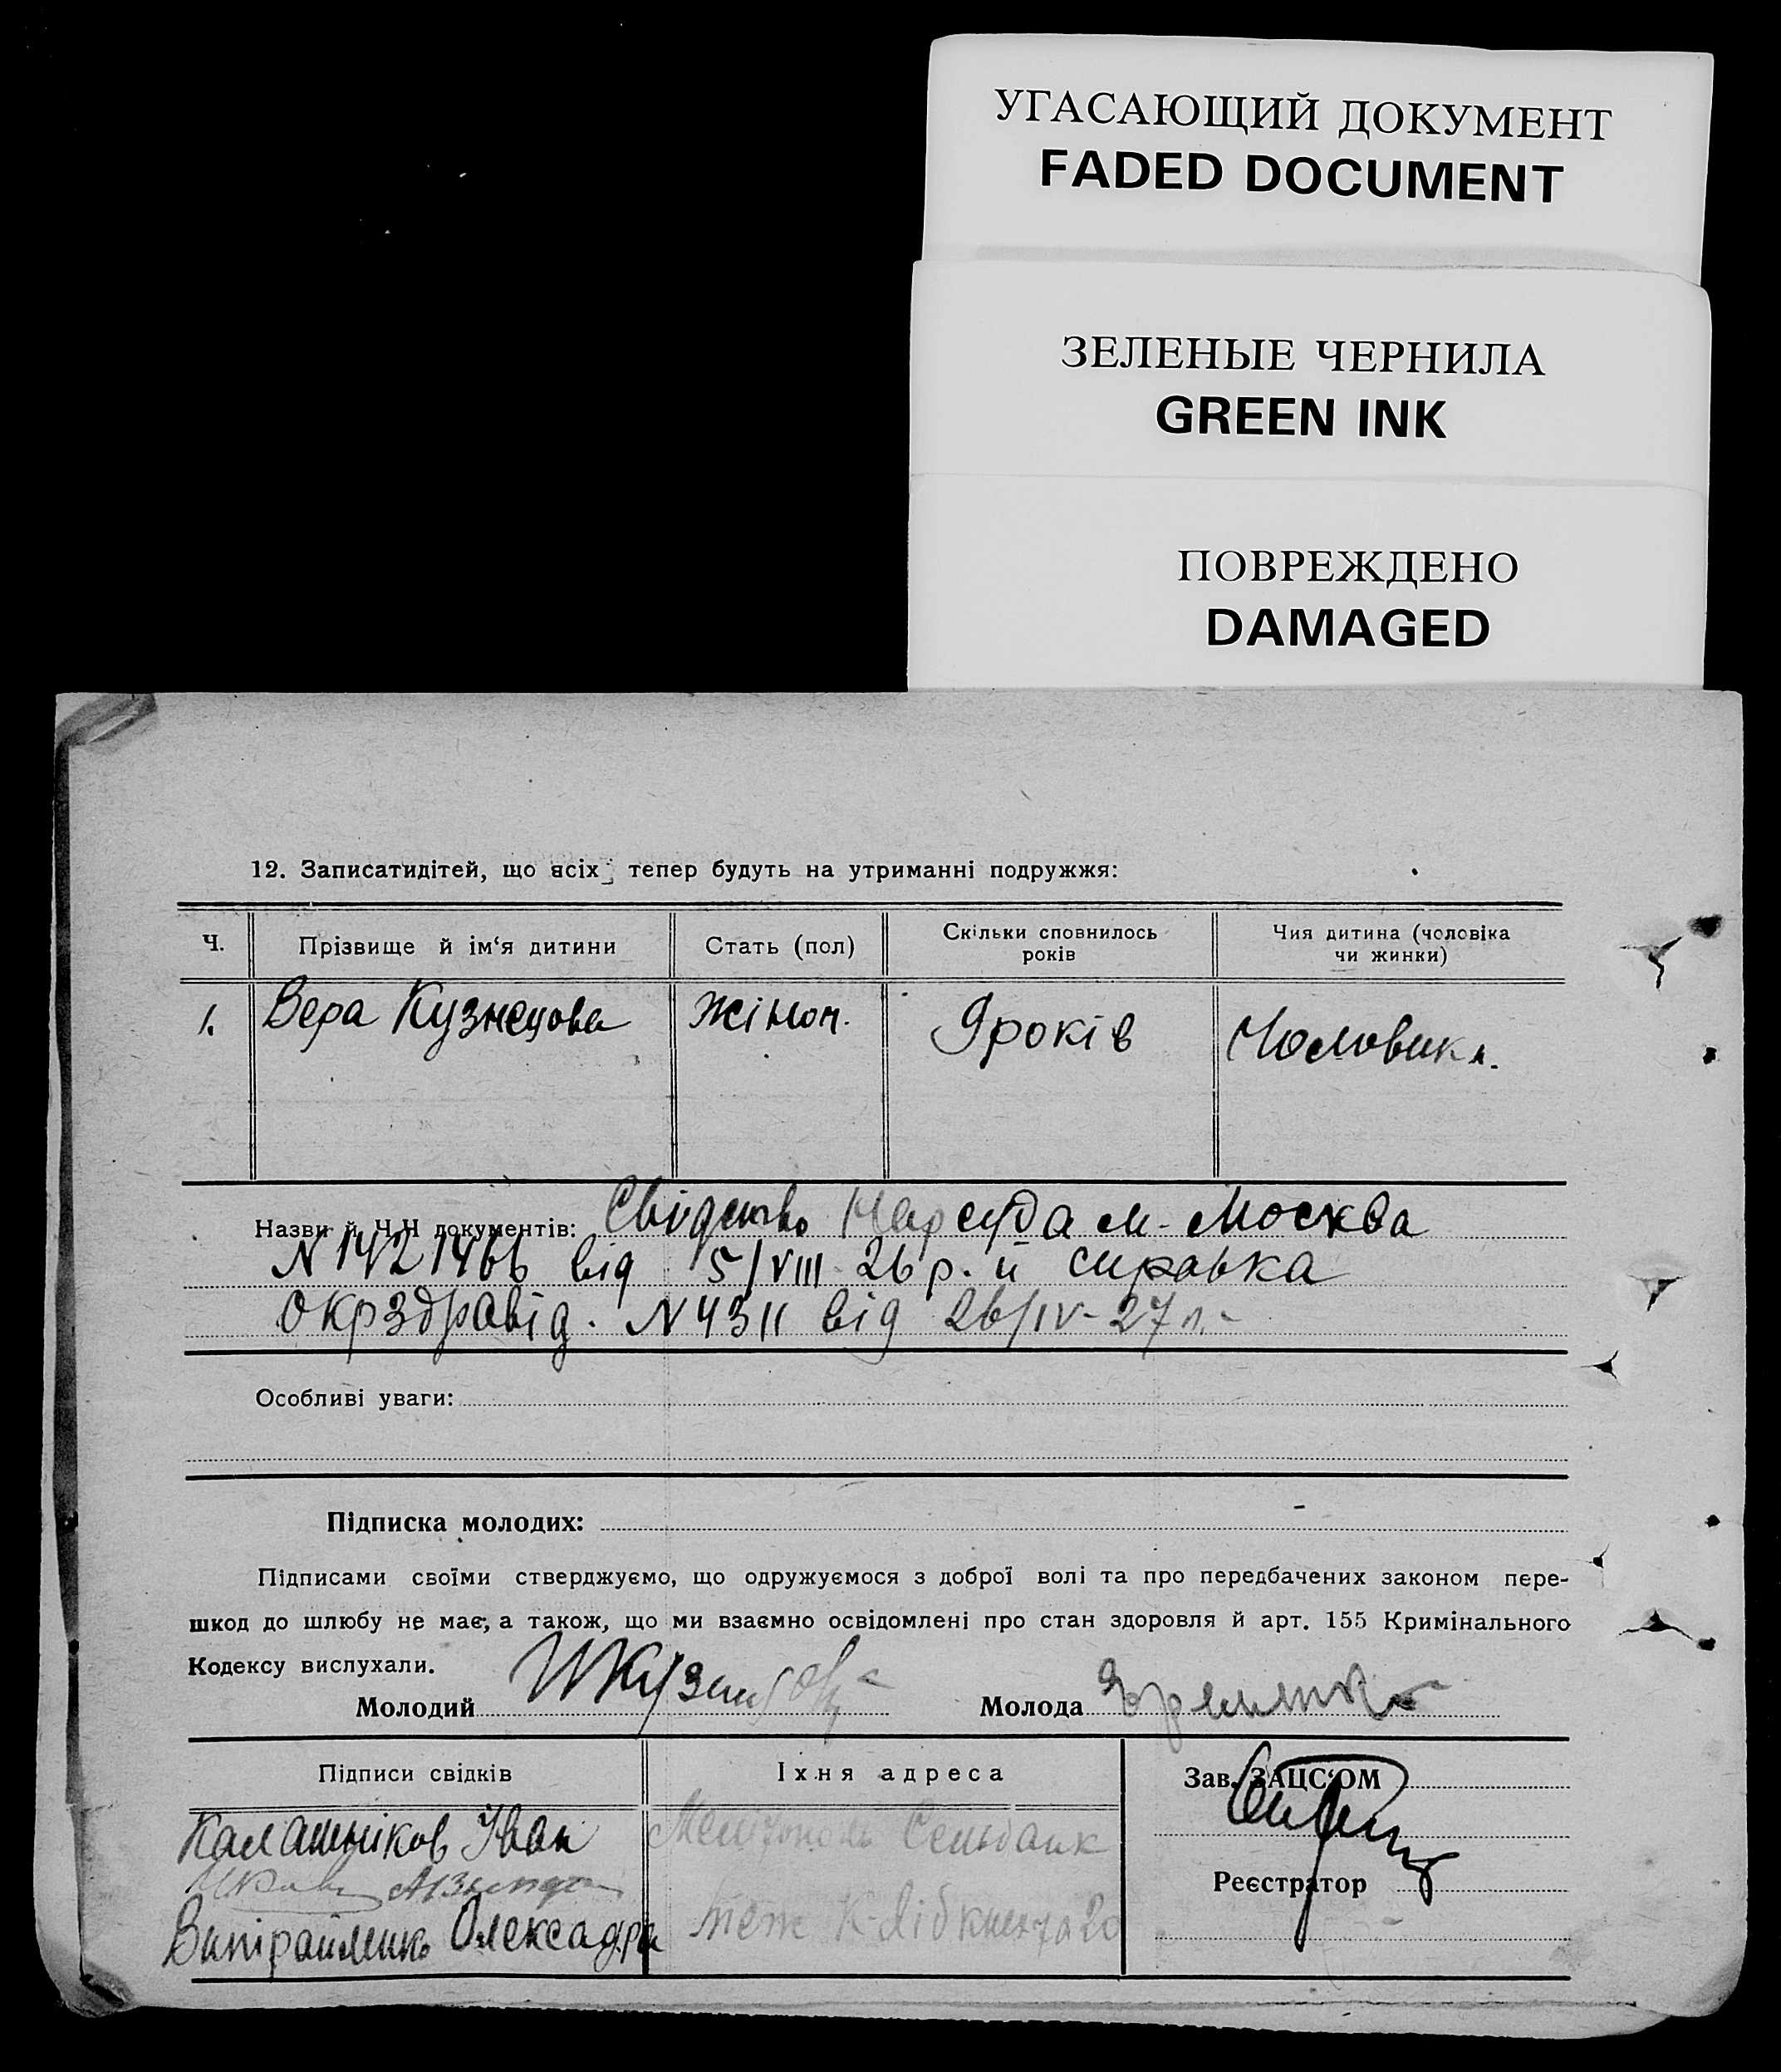 УГАСАЮЩИЙ ДОКУМЕНТ
FADED DOCUMENT
ЗЕЛЕНЫЕ ЧЕРНИЛА
GREEN INK
ПОВРЕЖДЕНО
DAMAGED
12. Записатидітей, що всіх тепер будуть на утриманні подружжя:
Ч. Прізвище й ім'я дитини Стать (пол) Скільки сповнилось років Чия дитина (чоловіка чи жинки)
1. Вера Кузнецова жіноч. 9 років Чоловика.
Назви й Ч.Ч документів: Свідство Нарсуда м. Москва
N 1421466 від 5/VIII 26 р. й справка
окрздравід. N 4311 від 26/IV-27 р.
Особливі уваги:
Підписка молодих:
Підписами своїми стверджуємо, що одружуємося з доброї волі та про передбачених законом пере-
шкод до шлюбу не має, а також, що ми взаємно освідомлені про стан здоровля й арт. 155 Кримінального
Кодексу вислухали.
Молодий Молода
Підписи свідків Їхня адреса Зав. ЗАЦС'ОМ
Калашніков Іван Сельбанк
Реєстратор
Олександра теж К-Лібкнехта 20